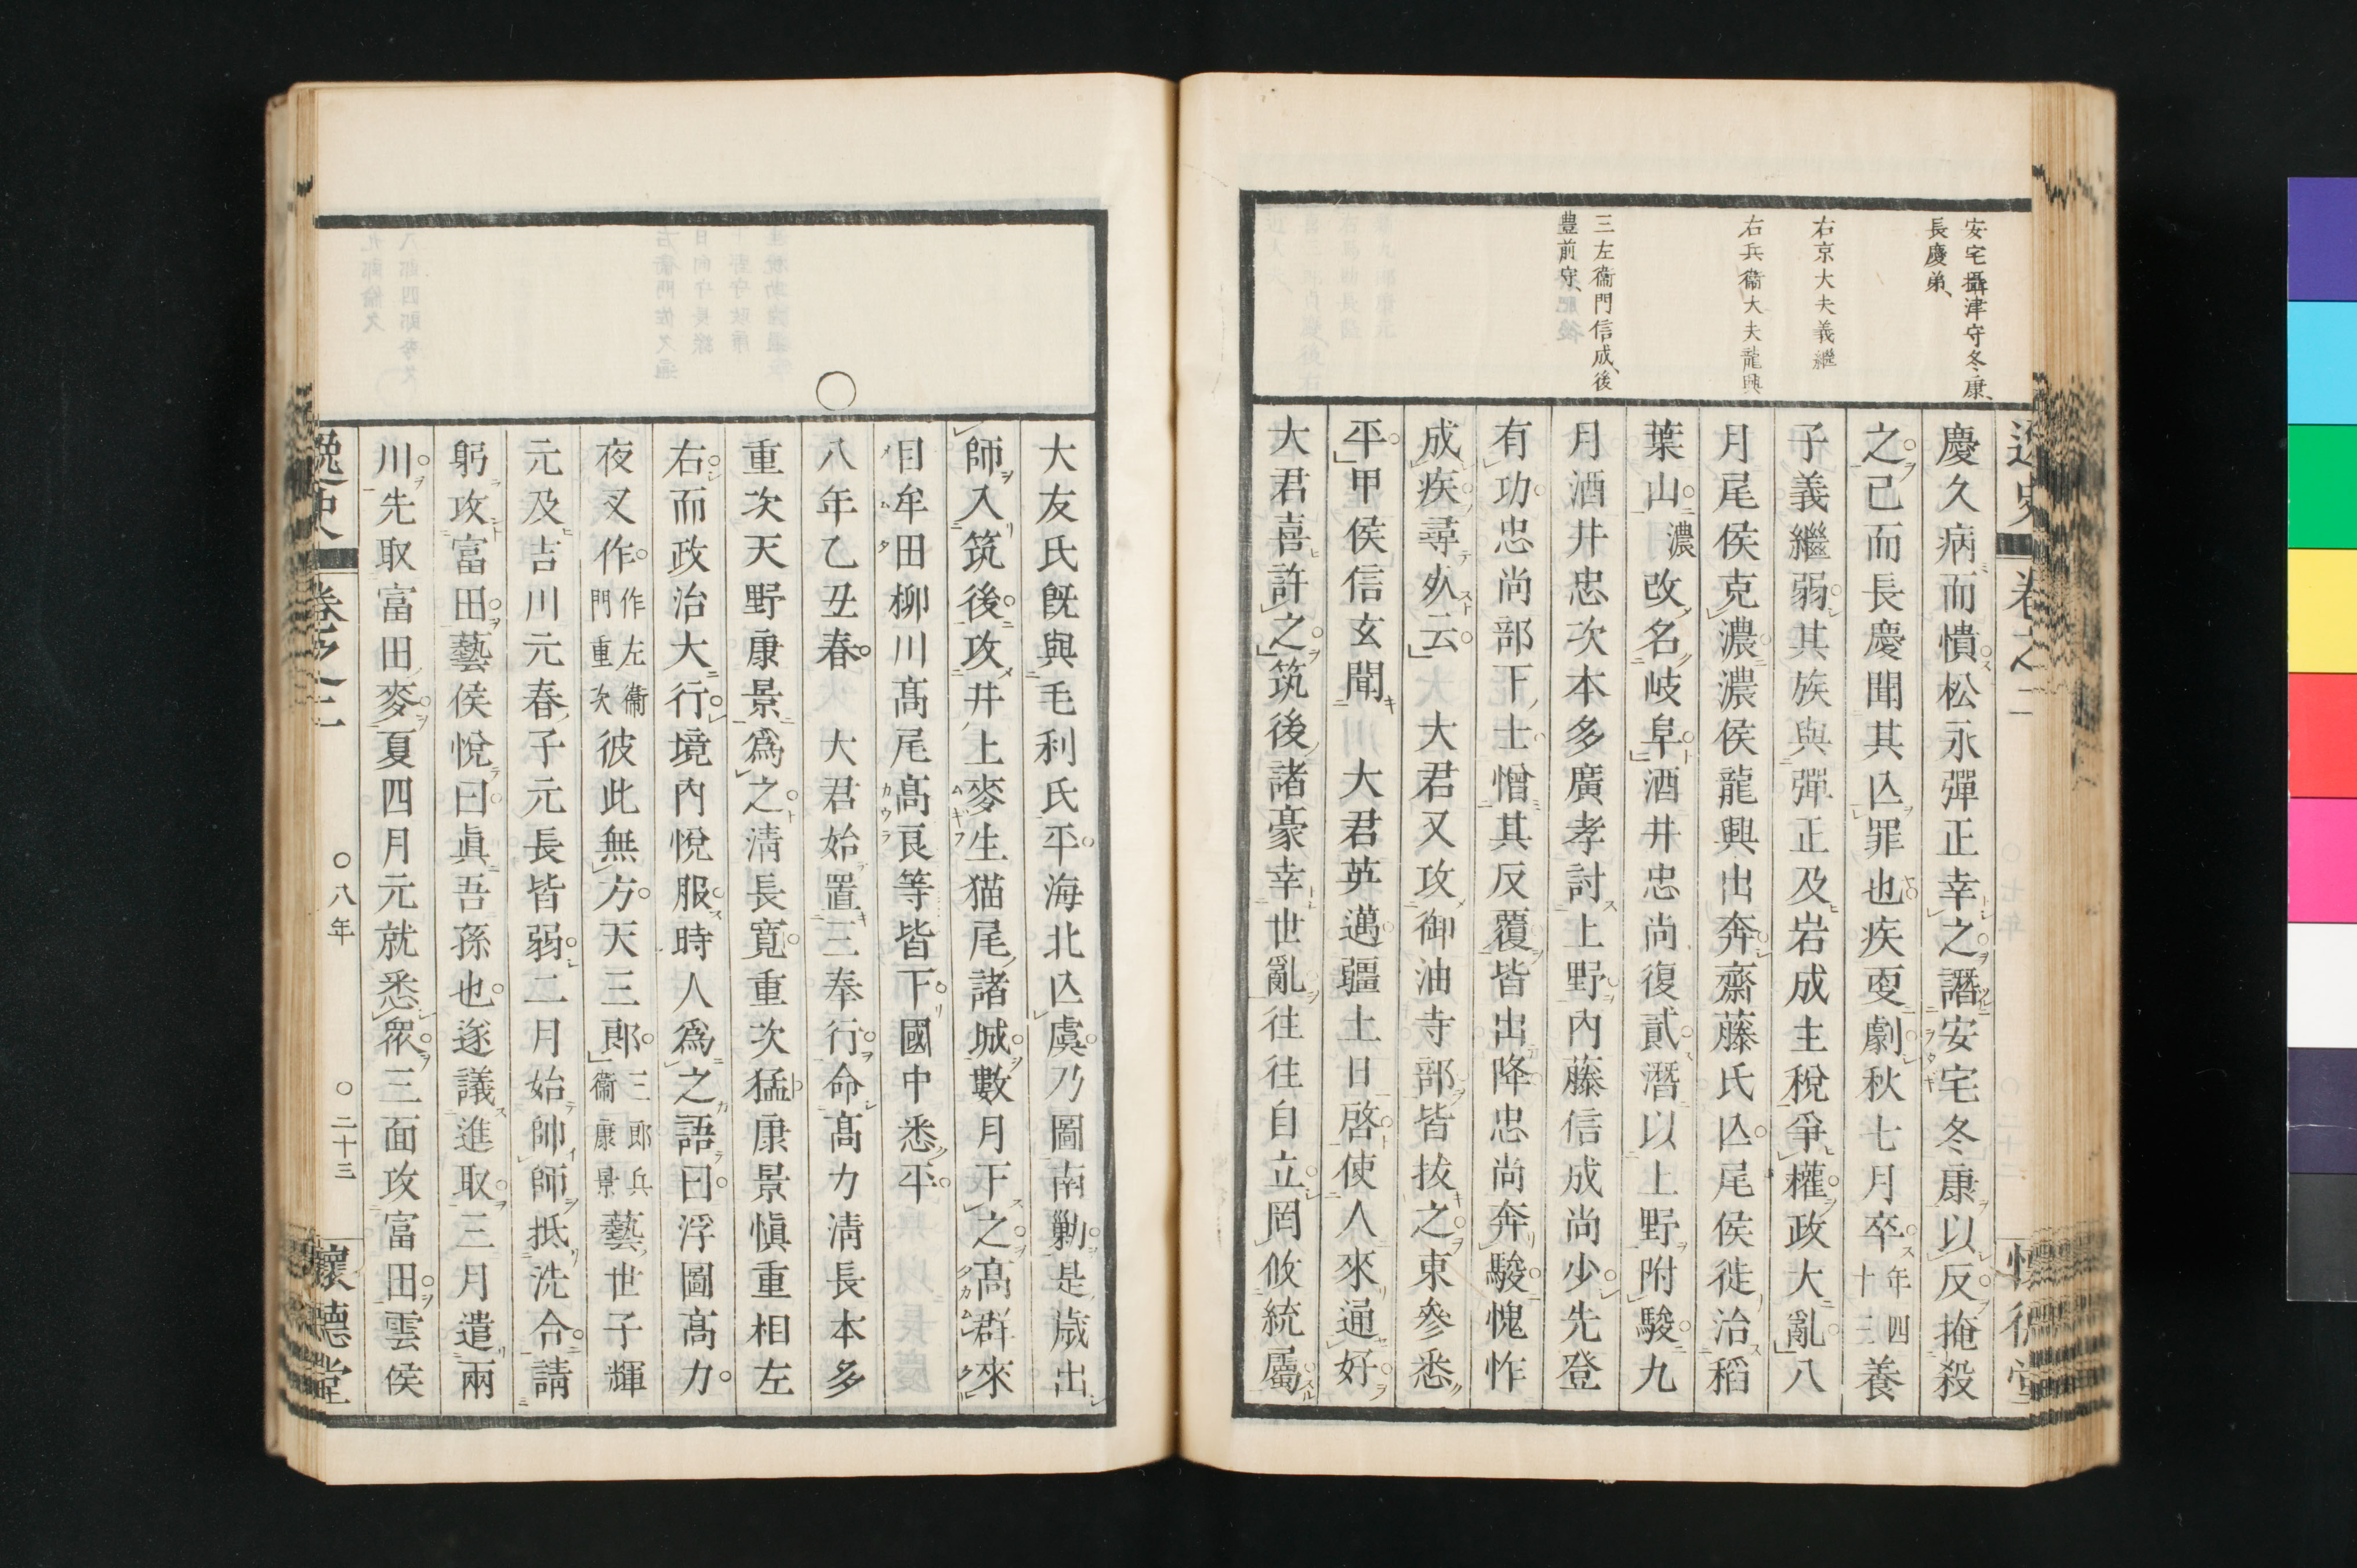 逸史 卷之二 懷德堂
安宅攝津守冬康、
長慶弟、
右京大夫義繼
右兵衞大夫龍興
三左衞門信成、後
豊前守、
慶久病而憒松永彈正幸之譖安宅冬康以反掩殺
之已而長慶聞其亾罪也疾更劇秋七月卒年四十三養
子義繼弱其族與彈正及岩成主稅爭權政大亂八
月尾侯克濃濃侯龍興出奔齋藤氏亾尾侯徙治稻
葉山濃改名岐阜酒井忠尚復貳潛以上野附駿九
月酒井忠次本多廣孝討上野內藤信成尚少先登
有功忠尚部下士憎其反覆皆出降忠尚奔駿愧怍
成疾尋死云 大君又攻御油寺部皆拔之東參悉
平甲侯信玄聞 大君英邁疆土日啓使人來通好
大君喜許之筑後諸豪幸世亂往往自立罔攸統屬
大友氏旣與毛利氏平海北亾虞乃圖南剿是歲出
師入筑後攻井上麥生猫尾諸城數月下之髙群來
目牟田柳川髙尾髙良等皆下國中悉平
○
八年乙丑春 大君始置三奉行命髙力淸長本多
重次天野康景爲之淸長寬重次猛康景愼重相左
右而政治大行境內悅服時人爲之語曰浮圖髙力
夜叉作作左衞門重次彼此無方天三郎三郎兵衞康景藝世子輝
元及吉川元春子元長皆弱二月始帥師抵洗合請
躬攻富田藝侯悅曰眞吾孫也遂議進取三月遣兩
川先取富田麥夏四月元就悉衆三面攻富田雲侯
逸史 卷之二 ○八年 ○二十三 懷德堂